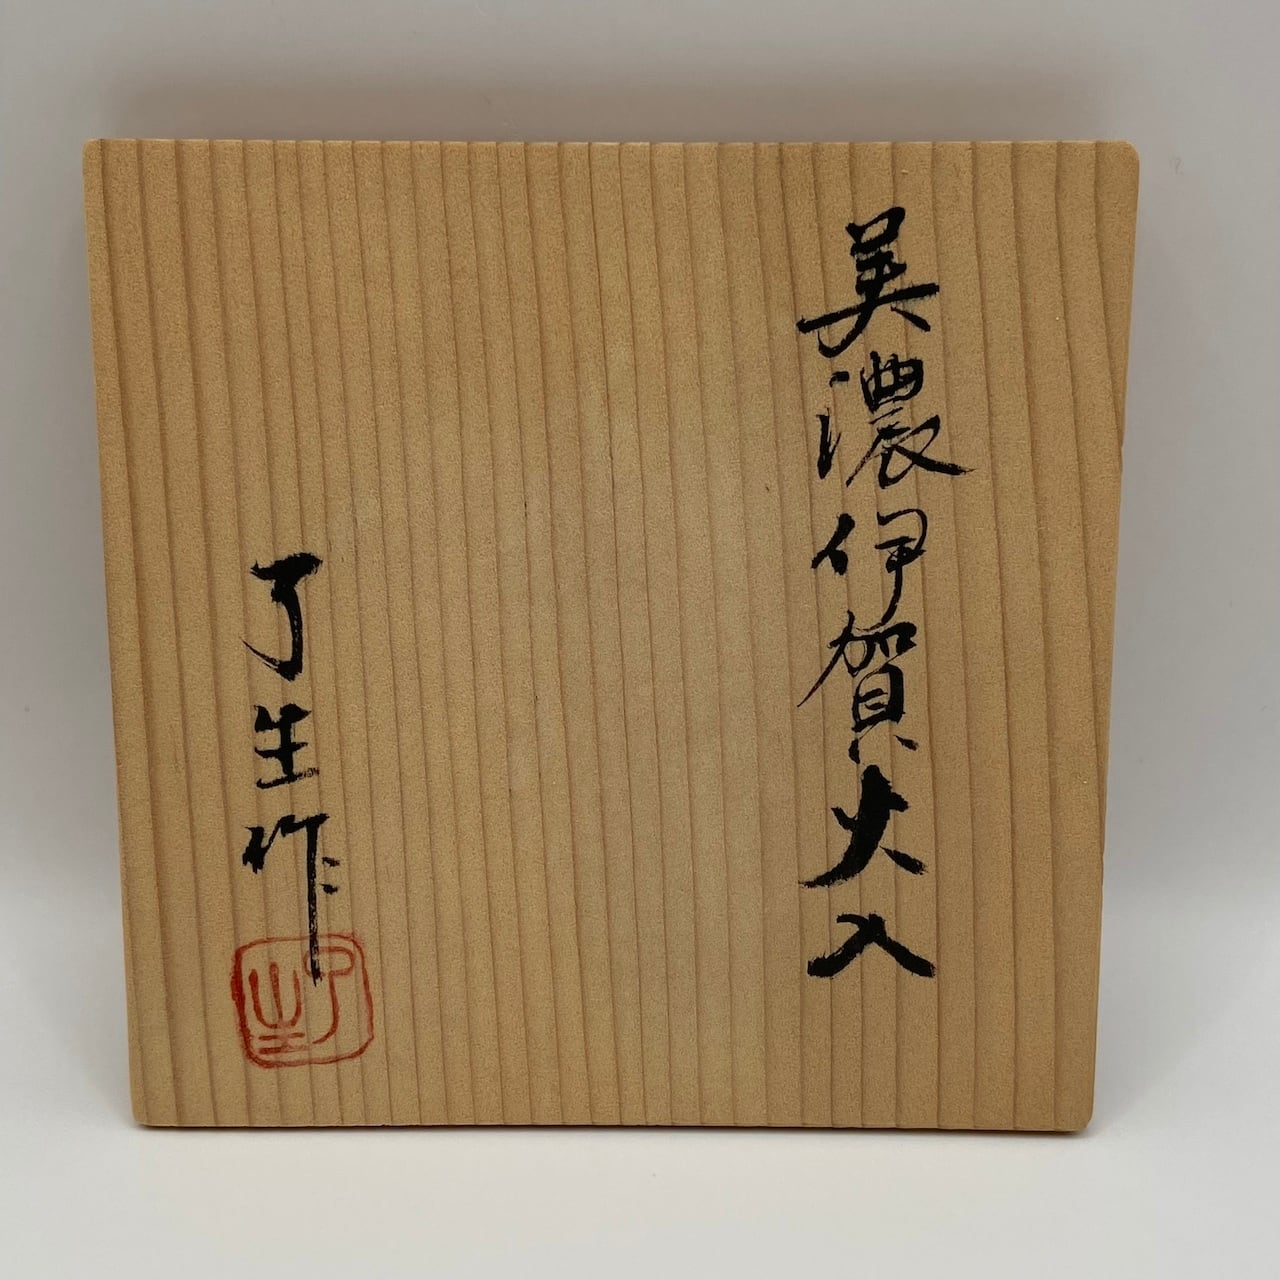 美濃伊賀火入
了生作
了生